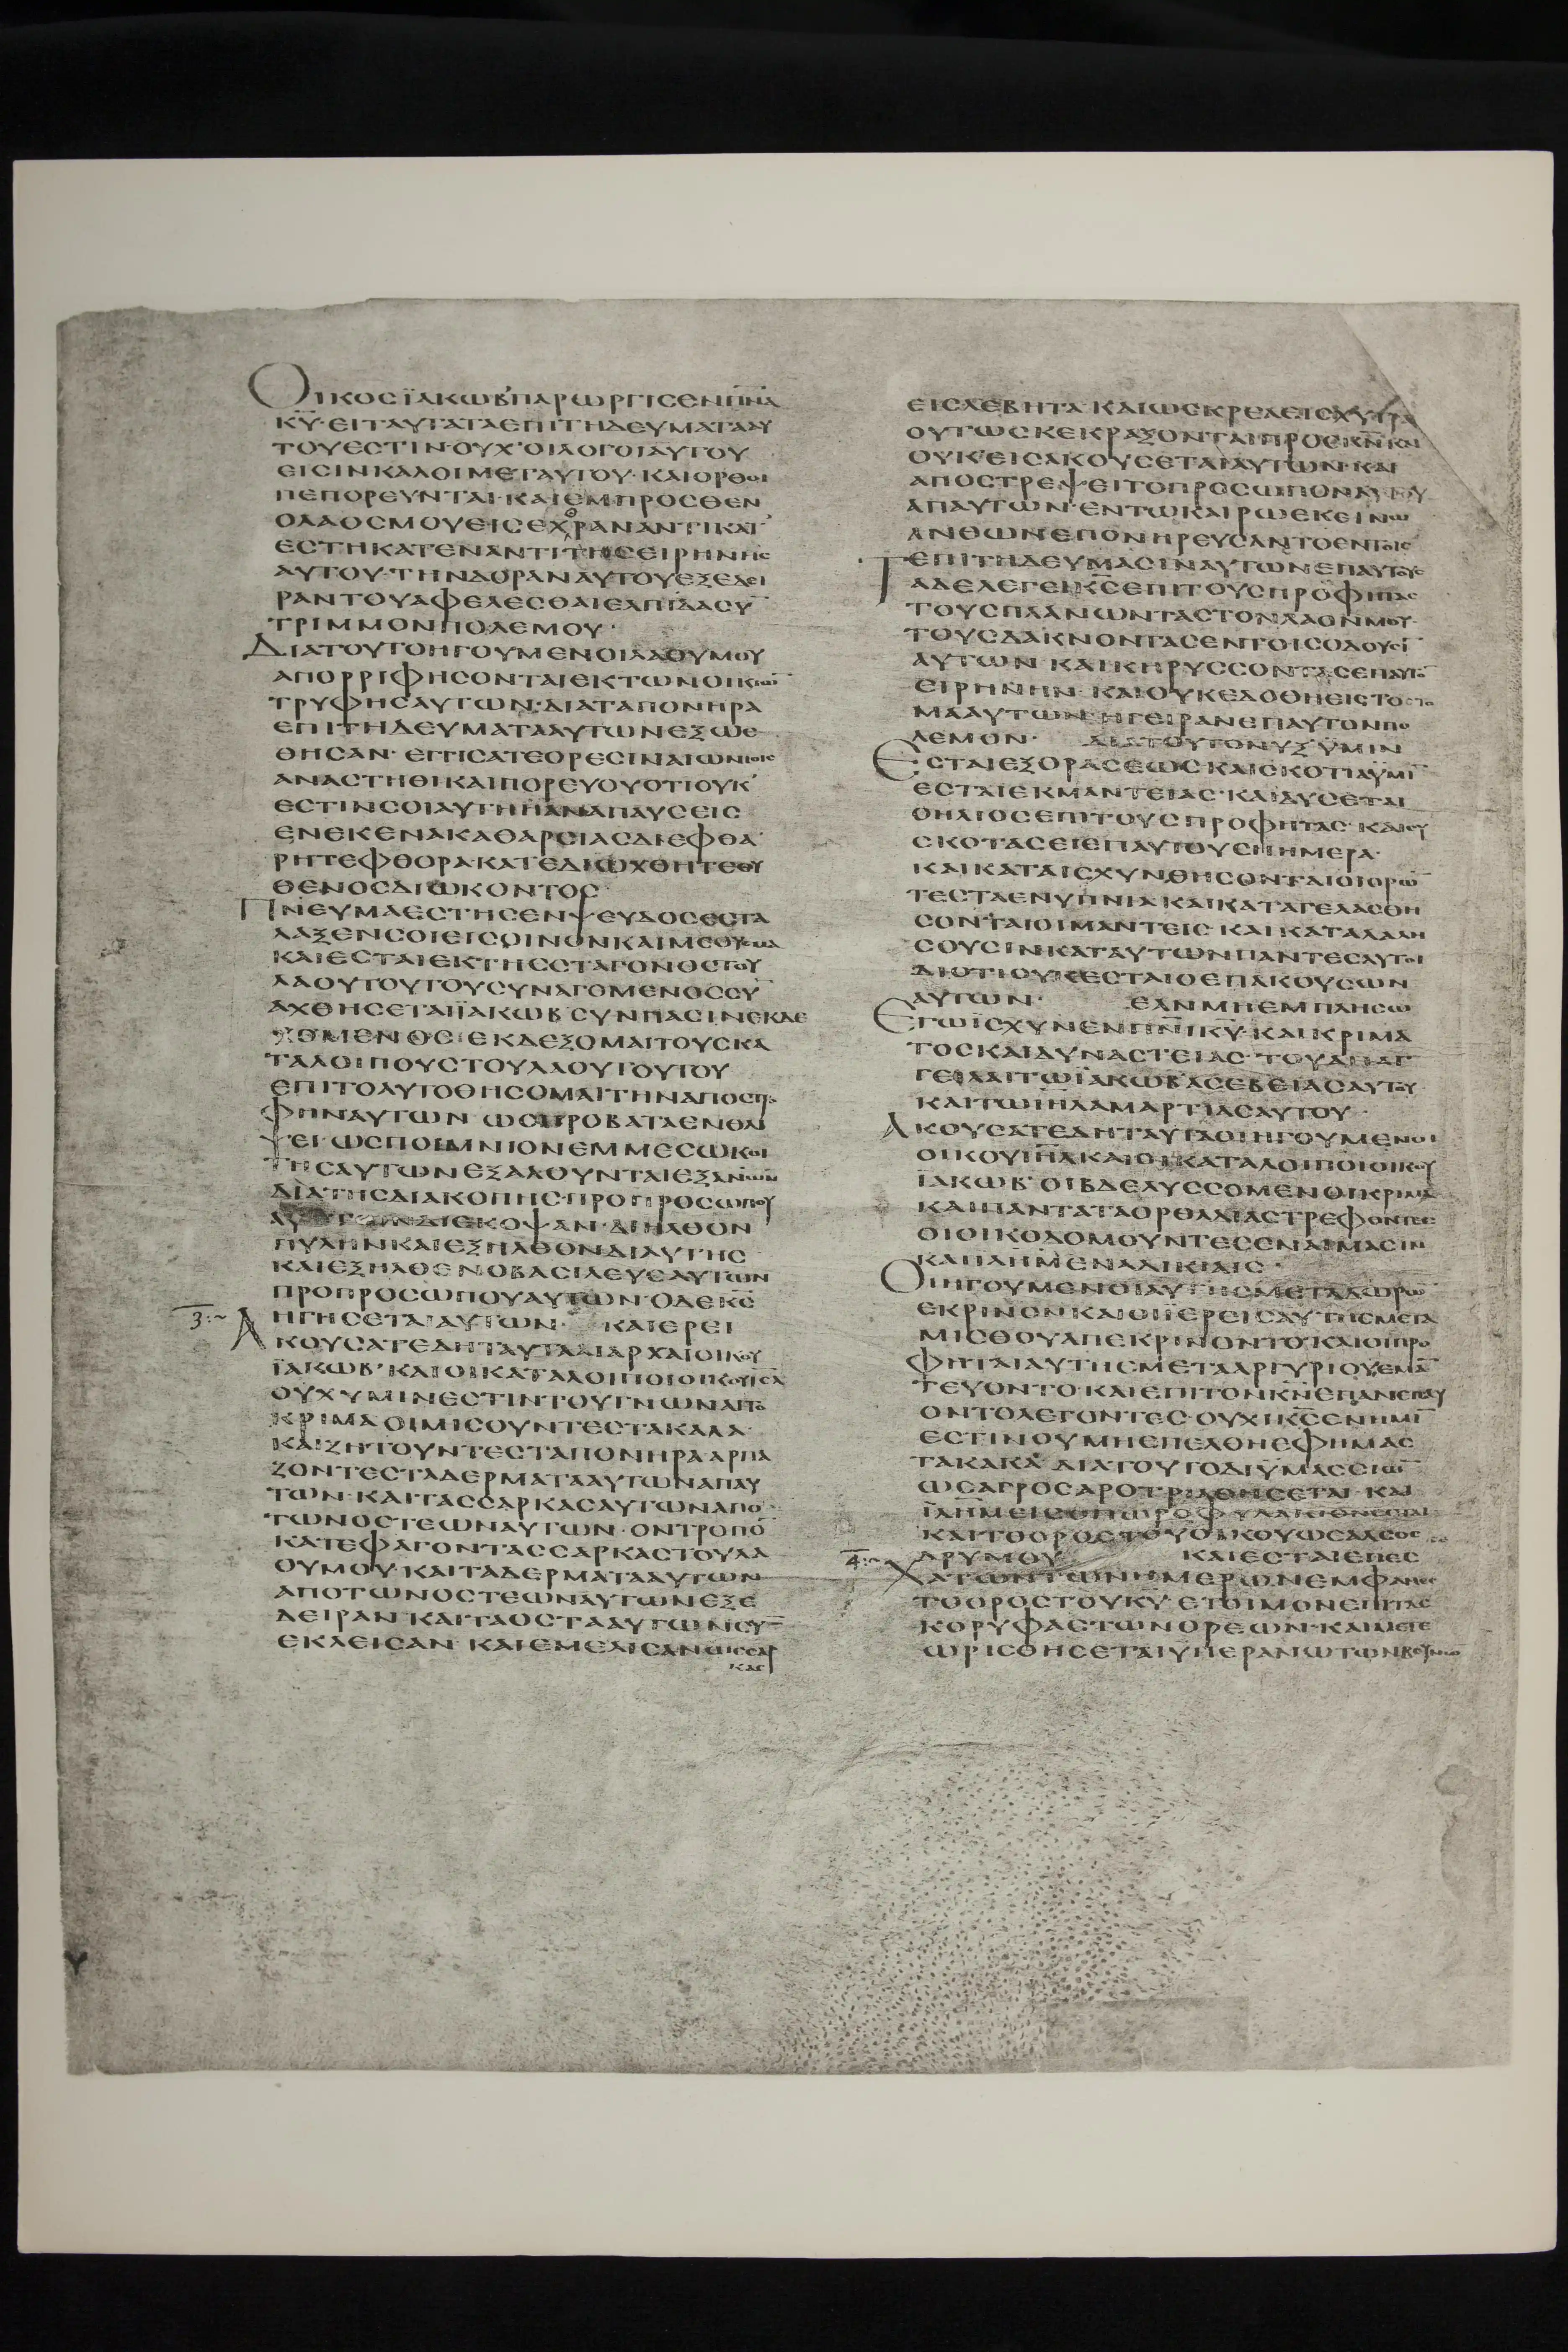 ΟΙΚΟϹΪΑΚΩΒ᾽ΠΑΡΩΡΓΙϹΕΝΠΝΑ
ΚΥ·ΕΙΤΑΥΤΑΤΑΕΠΙΤΗΔΕΥΜΑΤΑΑΥ
ΤΟΥΕϹΤΙΝ·ΟΥΧ᾽ΟΙΛΟΓΟΙΑΥΤΟΥ
ΕΙϹΙΝΚΑΛΟΙΜΕΤΑΥΤΟΥ·ΚΑΙΟΡΘΟΙ
ΠΕΠΟΡΕΥΝΤΑΙ·ΚΑΙΕΜΠΡΟϹΘΕΝ
ΟΛΑΟϹΜΟΥΕΙϹΕΧΘΡΑΝΑΝΤΙΚΑΤ᾽
ΕϹΤΗΚΑΤΕΝΑΝΤΙΤΗϹΕΙΡΗΝΗϹ
ΑΥΤΟΥ·ΤΗΝΔΟΡΑΝΑΥΤΟΥΕΞΕΔΕΙ
ΡΑΝΤΟΥΑΦΕΛΕϹΘΑΙΕΛΠΙΔΑϹΥ̅
ΤΡΙΜΜΟΝΠΟΛΕΜΟΥ·
ΔΙΑΤΟΥΤΟΗΓΟΥΜΕΝΟΙΛΑΟΥΜΟΥ
ΑΠΟΡΡΙΦΗϹΟΝΤΑΙΕΚΤΩΝΟΙΚΙΩ̅
ΤΡΥΦΗϹΑΥΤΩΝ·ΔΙΑΤΑΠΟΝΗΡΑ
ΕΠΙΤΗΔΕΥΜΑΤΑΑΥΤΩΝΕΞΩϹ
ΘΗϹΑΝ·ΕΓΓΙϹΑΤΕΟΡΕϹΙΝΑΙΩΝΙΟΙϹ
ΑΝΑϹΤΗΘΙΚΑΙΠΟΡΕΥΟΥΟΤΙΟΥΚ᾽
ΕϹΤΙΝϹΟΙΑΥΤΗΗΑΝΑΠΑΥϹΕΙϹ
ΕΝΕΚΕΝΑΚΑΘΑΡϹΙΑϹΔΙΕΦΘΑ
ΡΗΤΕΦΘΟΡΑ·ΚΑΤΕΔΙΩΧΘΗΤΕΟΥ
ΘΕΝΟϹΔΙΩΚΟΝΤΟϹ·
ΠΝΕΥΜΑΕϹΤΗϹΕΝΨΕΥΔΟϹΕϹΤΑ
ΛΑΞΕΝϹΟΙΕΙϹΟΙΝΟΝΚΑΙΜΕΘΥϹΜΑ
ΚΑΙΕϹΤΑΙΕΚΤΗϹϹΤΑΓΟΝΟϹΤΟΥ
ΛΑΟΥΤΟΥΤΟΥϹΥΝΑΓΟΜΕΝΟϹϹΥ
ΑΧΘΗϹΕΤΑΙΪΑΚΩΒ᾽ϹΥΝΠΑϹΙΝΕΚΔΕ
ΧΟΜΕΝΟϹΕΚΔΕΞΟΜΑΙΤΟΥϹΚΑ
ΤΑΛΟΙΠΟΥϹΤΟΥΛΑΟΥΤΟΥΤΟΥ
ΕΠΙΤΟΑΥΤΟΘΗϹΟΜΑΙΤΗΝΑΠΟϹΤΡΟ
ΦΗΝΑΥΤΩΝ·ΩϹΠΡΟΒΑΤΑΕΝΘΛΙ
ΨΕΙ·ΩϹΠΟΙΜΝΙΟΝΕΜΜΕϹΩΚΟΙ
ΤΗϹΑΥΤΩΝΕΞΑΛΟΥΝΤΑΙΕΞΑΝΩΝ
ΔΙΑΤΗϹΔΙΑΚΟΠΗϹ·ΠΡΟΠΡΟϹΩΠΟΥ
ΑΥΤΩΝΔΙΕΚΟΨΑΝ·ΔΙΗΛΘΟΝ
ΠΥΛΗΝΚΑΙΕΞΗΛΘΟΝΔΙΑΥΤΗϹ
ΚΑΙΕΞΗΛΘΕΝΟΒΑϹΙΛΕΥϹΑΥΤΩΝ
ΠΡΟΠΡΟϹΩΠΟΥΑΥΤΩΝ·ΟΔΕΚϹ
ΗΓΗϹΕΤΑΙΑΥΤΩΝ· ΚΑΙΕΡΕΙ
3:~ ΑΚΟΥϹΑΤΕΔΗΤΑΥΤΑΑΙΑΡΧΑΙΟΙΚΟΥ
ΪΑΚΩΒ᾽·ΚΑΙΟΙΚΑΤΑΛΟΙΠΟΙΟΙΚΟΥΙΗΛ
ΟΥΧΥΜΙΝΕϹΤΙΝΤΟΥΓΝΩΝΑΙΤΟ
ΚΡΙΜΑΟΙΜΙϹΟΥΝΤΕϹΤΑΚΑΛΑ·
ΚΑΙΖΗΤΟΥΝΤΕϹΤΑΠΟΝΗΡΑ·ΑΡΠΑ
ΖΟΝΤΕϹΤΑΔΕΡΜΑΤΑΑΥΤΩΝΑΠΑΥ
ΤΩΝ·ΚΑΙΤΑϹϹΑΡΚΑϹΑΥΤΩΝΑΠΟ
ΤΩΝΟϹΤΕΩΝΑΥΤΩΝ·ΟΝΤΡΟΠΟ̅
ΚΑΤΕΦΑΓΟΝΤΑϹϹΑΡΚΑϹΤΟΥΛΑ
ΟΥΜΟΥ·ΚΑΙΤΑΔΕΡΜΑΤΑΑΥΤΩΝ
ΑΠΟΤΩΝΟϹΤΕΩΝΑΥΤΩΝΕΞΕ
ΔΕΙΡΑΝ·ΚΑΙΤΑΟϹΤΑΑΥΤΩΝϹΥ̅
ΕΚΛΕΙϹΑΝ·ΚΑΙΕΜΕΛΙϹΑΝΩϹϹΑΡ
ΚΑϹ
ΕΙϹΛΕΒΗΤΑ·ΚΑΙΩϹΚΡΕΑΕΙϹΧΥΤΡΑ
ΟΥΤΩϹΚΕΚΡΑΞΟΝΤΑΙΠΡΟϹΚΝΚΑΙ
ΟΥΚΕΙϹΑΚΟΥϹΕΤΑΙΑΥΤΩΝ·ΚΑΙ
ΑΠΟϹΤΡΕΨΕΙΤΟΠΡΟϹΩΠΟΝΑΥΤΟΥ
ΑΠΑΥΤΩΝ·ΕΝΤΩΚΑΙΡΩΕΚΕΙΝΩ
ΑΝΘΩΝΕΠΟΝΗΡΕΥϹΑΝΤΟΕΝΤΟΙϹ
ΕΠΙΤΗΔΕΥΜΑϹΙΝΑΥΤΩΝΕΠΑΥΤΟΥϹ
ΤΑΔΕΛΕΓΕΙΚϹΕΠΙΤΟΥϹΠΡΟΦΗΤΑϹ
ΤΟΥϹΠΛΑΝΩΝΤΑϹΤΟΝΛΑΟΝΜΟΥ·
ΤΟΥϹΔΑΚΝΟΝΤΑϹΕΝΤΟΙϹΟΔΟΥϹΙ̅
ΑΥΤΩΝ·ΚΑΙΚΗΡΥϹϹΟΝΤΑϹΕΠΑΥΤΟ̅
ΕΙΡΗΝΗΝ·ΚΑΙΟΥΚΕΔΟΘΗΕΙϹΤΟϹΤΟ
ΜΑΑΥΤΩΝ·ΗΓΕΙΡΑΝΕΠΑΥΤΟΝΠΟ
ΛΕΜΟΝ· ΔΙΑΤΟΥΤΟΝΥΞΫΜΙΝ
ΕϹΤΑΙΕΞΟΡΑϹΕΩϹ·ΚΑΙϹΚΟΤΙΑΫΜΙ̅
ΕϹΤΑΙΕΚΜΑΝΤΕΙΑϹ·ΚΑΙΔΥϹΕΤΑΙ
ΟΗΛΙΟϹΕΠΙΤΟΥϹΠΡΟΦΗΤΑϹ·ΚΑΙϹΥ
ϹΚΟΤΑϹΕΙΕΠΑΥΤΟΥϹΗΗΜΕΡΑ·
ΚΑΙΚΑΤΑΙϹΧΥΝΘΗϹΟΝΤΑΙΟΙΟΡΩ̅
ΤΕϹΤΑΕΝΥΠΝΙΑ·ΚΑΙΚΑΤΑΓΕΛΑϹΘΗ
ϹΟΝΤΑΙΟΙΜΑΝΤΕΙϹ·ΚΑΙΚΑΤΑΛΑΛΗ
ϹΟΥϹΙΝΚΑΤΑΥΤΩΝΠΑΝΤΕϹΑΥΤΟΙ
ΔΙΟΤΙΟΥΚΕϹΤΑΙΟΕΠΑΚΟΥϹΩΝ
ΑΥΤΩΝ· ΕΑΝΜΗΕΜΠΛΗϹΩ
ΕΓΩΙϹΧΥΝΕΝΠΝΙΚΥ·ΚΑΙΚΡΙΜΑ
ΤΟϹΚΑΙΔΥΝΑϹΤΕΙΑϹ·ΤΟΥΑΠΑΓ᾽
ΓΕΙΛΑΙΤΩΪΑΚΩΒ᾽ΑϹΕΒΕΙΑϹΑΥΤΟΥ·
ΚΑΙΤΩΙΗΛΑΜΑΡΤΙΑϹΑΥΤΟΥ·
ΑΚΟΥϹΑΤΕΔΗΤΑΥΤΑΟΙΗΓΟΥΜΕΝΟΙ
ΟΙΚΟΥΙΗΛΚΑΙΟΙΚΑΤΑΛΟΙΠΟΙΟΙΚΟΥ
ΪΑΚΩΒ᾽·ΟΙΒΔΕΛΥϹϹΟΜΕΝΟΙΚΡΙΜΑ
ΚΑΙΠΑΝΤΑΤΑΟΡΘΑΔΙΑϹΤΡΕΦΟΝΤΕϹ
ΟΙΟΙΚΟΔΟΜΟΥΝΤΕϹϹΝΑΙΜΑϹΙΝ
ΚΑΙΙΛΗΜΕΝΑΔΙΚΙΑΙϹ·
ΟΙΗΓΟΥΜΕΝΟΙΑΥΤΗϹΜΕΤΑΔΩΡΩ̅
ΕΚΡΙΝΟΝ·ΚΑΙΟΙΪΕΡΕΙϹΑΥΤΗϹΜΕΤΑ
ΜΙϹΘΟΥΑΠΕΚΡΙΝΟΝΤΟ·ΚΑΙΟΙΠΡΟ
ΦΗΤΑΙΑΥΤΗϹΜΕΤΑΑΡΓΥΡΙΟΥΕΜΑ̅
ΤΕΥΟΝΤΟ·ΚΑΙΕΠΙΤΟΝΚΝΕΠΑΝΕΠΑΥ
ΟΝΤΟΛΕΓΟΝΤΕϹ·ΟΥΧΙΚϹΕΝΗΜΙ̅
ΕϹΤΙΝΟΥΜΗΕΠΕΛΘΗΕΦΗΜΑϹ
ΤΑΚΑΚΑ᾽ΔΙΑΤΟΥΤΟΔΙΫΜΑϹϹΙΩ̅
ΩϹΑΓΡΟϹΑΡΟΤΡΙΑΘΗϹΕΤΑΙ·ΚΑΙ
ΪΛΗΜΕΙϹΟΠΩΡΟΦΥΛΑΚΙΟΝΕϹΤΑΙ
ΚΑΙΤΟΟΡΟϹΤΟΥΟΙΚΟΥΩϹΑΛϹΟϹ
ΔΡΥΜΟΥ· ΚΑΙΕϹΤΑΙΕΠΕϹ
4:~ ΧΑΤΩΝΤΩΝΗΜΕΡΩΝΕΜΦΑΝΕϹ
ΤΟΟΡΟϹΤΟΥΚΥ·ΕΤΟΙΜΟΝΕΠΙΤΑϹ
ΚΟΡΥΦΑϹΤΩΝΟΡΕΩΝ·ΚΑΙΜΕΤΕ
ΩΡΙϹΘΗϹΕΤΑΙΥΠΕΡΑΝΩΤΩΝΒΟΥΝΩ